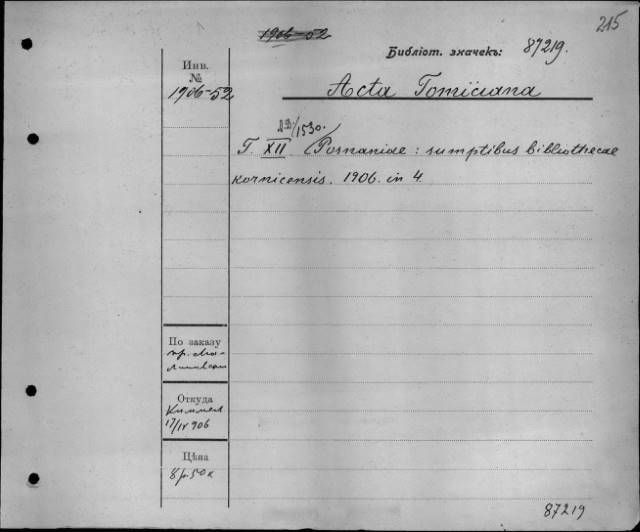 215
1906-52
Библiот. значекъ: 87219.
Инв.
№
1906-52
Acta Tomiciana
/1530.
T. XII Posnaniae: sumptibus bibliothecae
kornicensis. 1906. in 4.
По заказу
пр.
Откуда
Киммель
17/IV 906
Цѣна
8 р. 50 к
87219